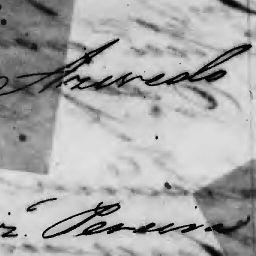 Azevedo
Pereira